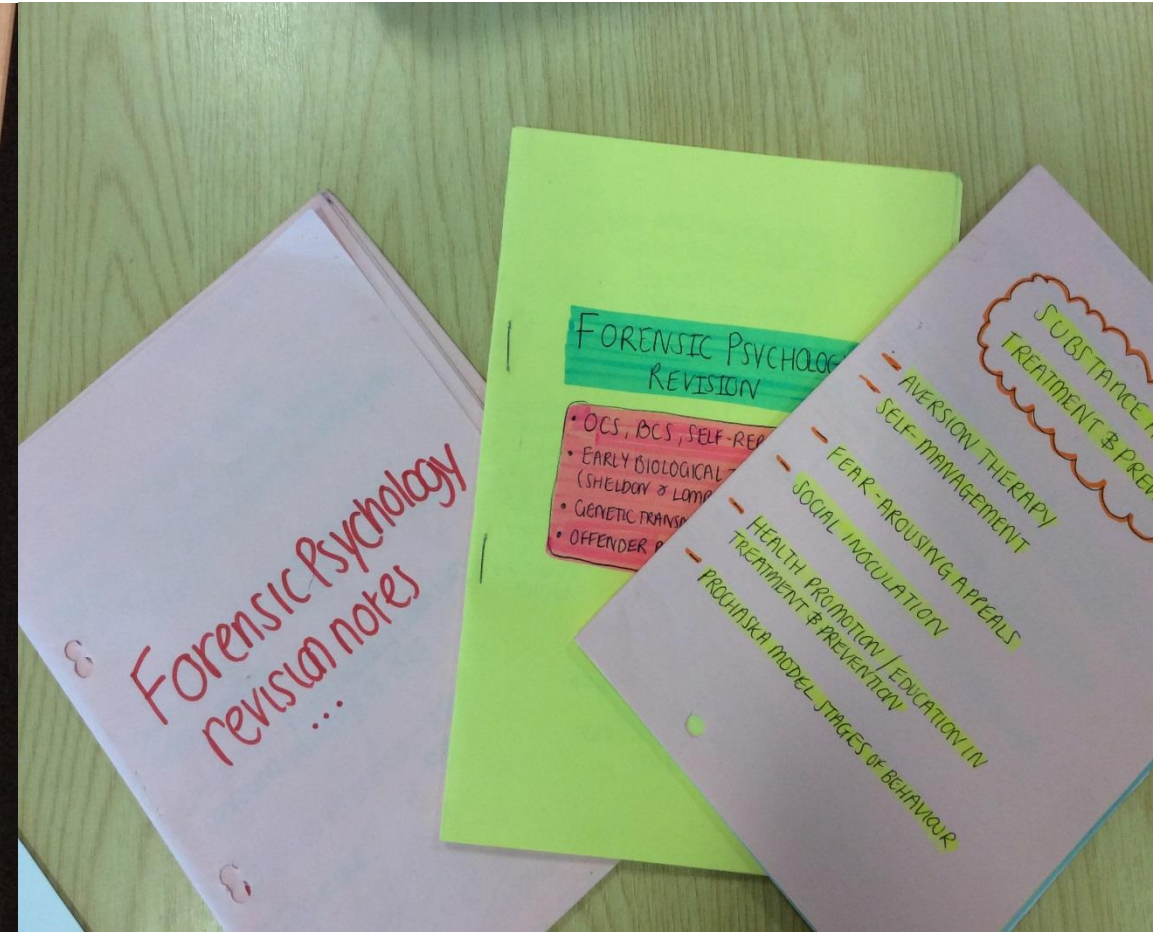 Forensic Psychology
revision notes
...
FORENSIC PSYCHOLOG
REVISION
• OCS, BCS, SELF-REP
• EARLY BIOLOGICAL
(SHELDON & LOMB
• GENETIC TRANS
• OFFENDER P
SUBSTANCE
TREATMENT & PREV
- AVERSION THERAPY
- SELF-MANAGEMENT
- FEAR-AROUSING APPEALS
- SOCIAL INOCULATION
- HEALTH PROMOTION/EDUCATION IN
TREATMENT & PREVENTION
- PROCHASKA MODEL STAGES OF BEHAVIOUR